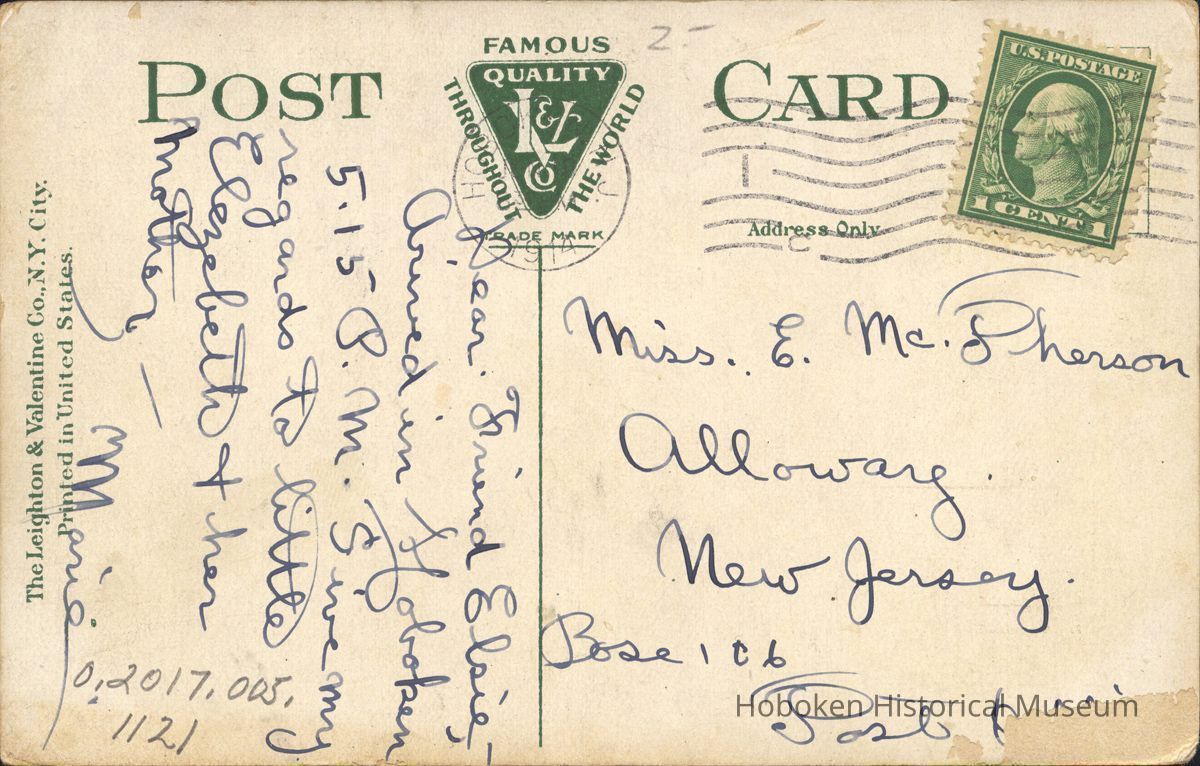 POST CARD
FAMOUS
QUALITY
THROUGHOUT
THE WORLD
L&V
Co
TRADE MARK
2-
U.S. POSTAGE
1 CENT 1
1914
Address Only.
The Leighton & Valentine Co., N.Y. City.
Printed in United States.
Dear. Friend Elsie,-
Arived in Hoboken
5.15 P. M. Give my
regards to little
Elezebeth + her
mother —
Marie
Miss. E. Mc.Pherson
Alloway.
New Jersey.
Boxe 106
0.2017.005.
1121
Hoboken Historical Museum